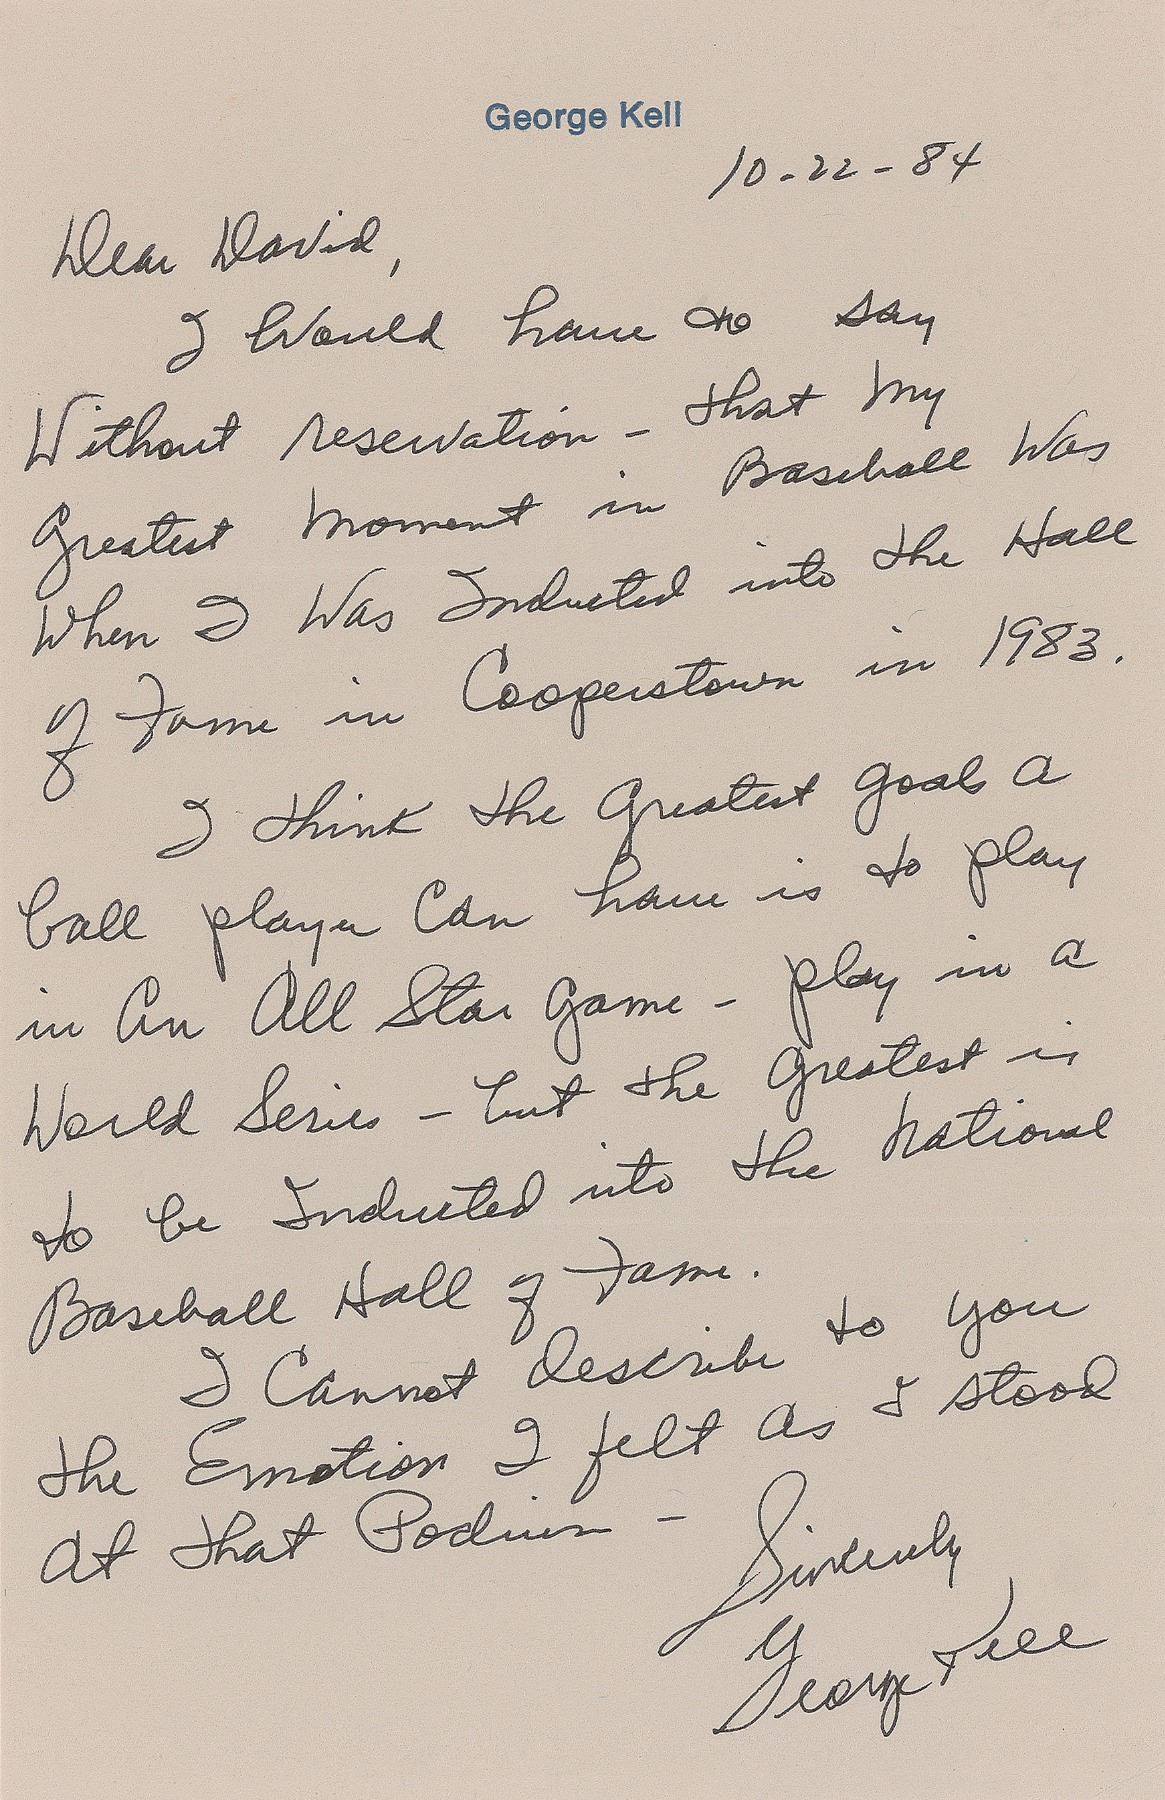 George Kell
10-22-84
Dear David,
I Would have to say
Without reservation - that My
Greatest Moment in Baseball Was
When I Was Inducted into the Hall
of Fame in Cooperstown in 1983.
I think the Greatest goals a
ball player Can have is to play
in An All Star Game - play in a
World Series - but the Greatest is
to be Inducted into the National
Baseball Hall of Fame.
I Cannot describe to you
the Emotion I felt As I stood
At that Podium -
Sincerely
George Kell